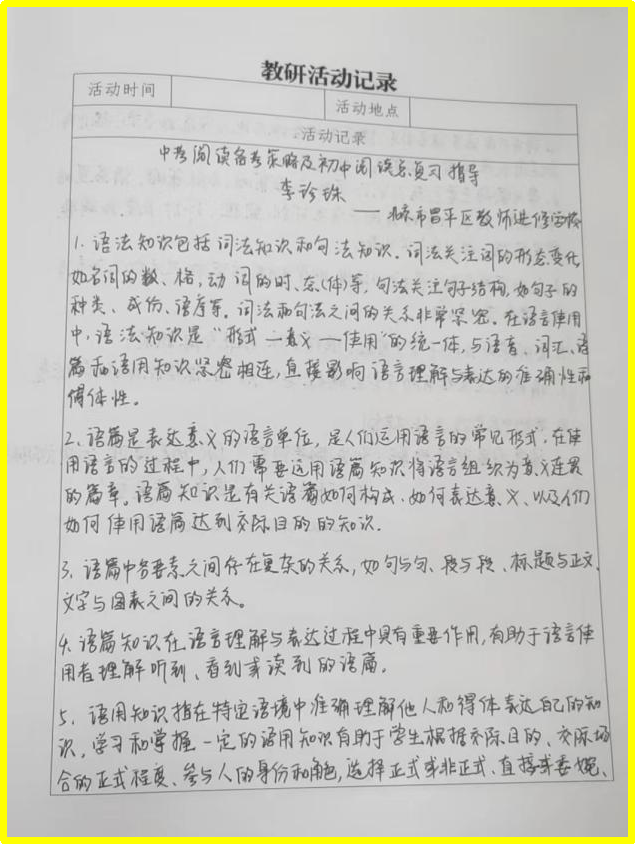 教研活动记录
活动时间
活动地点
活动记录
中考阅读备考策略及初中阅读总复习指导
李珍珠
——北京市昌平区教师进修学校
1. 语法知识包括词法知识和句法知识。词法关注词的形态变化,
如名词的数、格,动词的时、态(体)等,句法关注句子结构,如句子的
种类、成份、语序等。词法和句法之间的关系非常紧密。在语言使用
中,语法知识是“形式—意义—使用”的统一体,与语音、词汇、语
篇和语用知识紧密相连,直接影响语言理解与表达的准确性和
得体性。
2. 语篇是表达意义的语言单位,是人们运用语言的常见形式,在使
用语言的过程中,人们需要运用语篇知识将语言组织为意义连贯
的篇章。语篇知识是有关语篇如何构成、如何表达意义、以及人们
如何使用语篇达到交际目的的知识.
3. 语篇中各要素之间存在复杂的关系,如句与句、段与段、标题与正文、
文字与图表之间的关系。
4. 语篇知识在语言理解与表达过程中具有重要作用,有助于语言使
用者理解听到、看到或读到的语篇.
5. 语用知识指在特定语境中准确理解他人和得体表达自己的知
识,学习和掌握一定的语用知识有助于学生根据交际目的、交际场
合的正式程度、参与人的身份和角色,选择正式或非正式、直接或委婉、